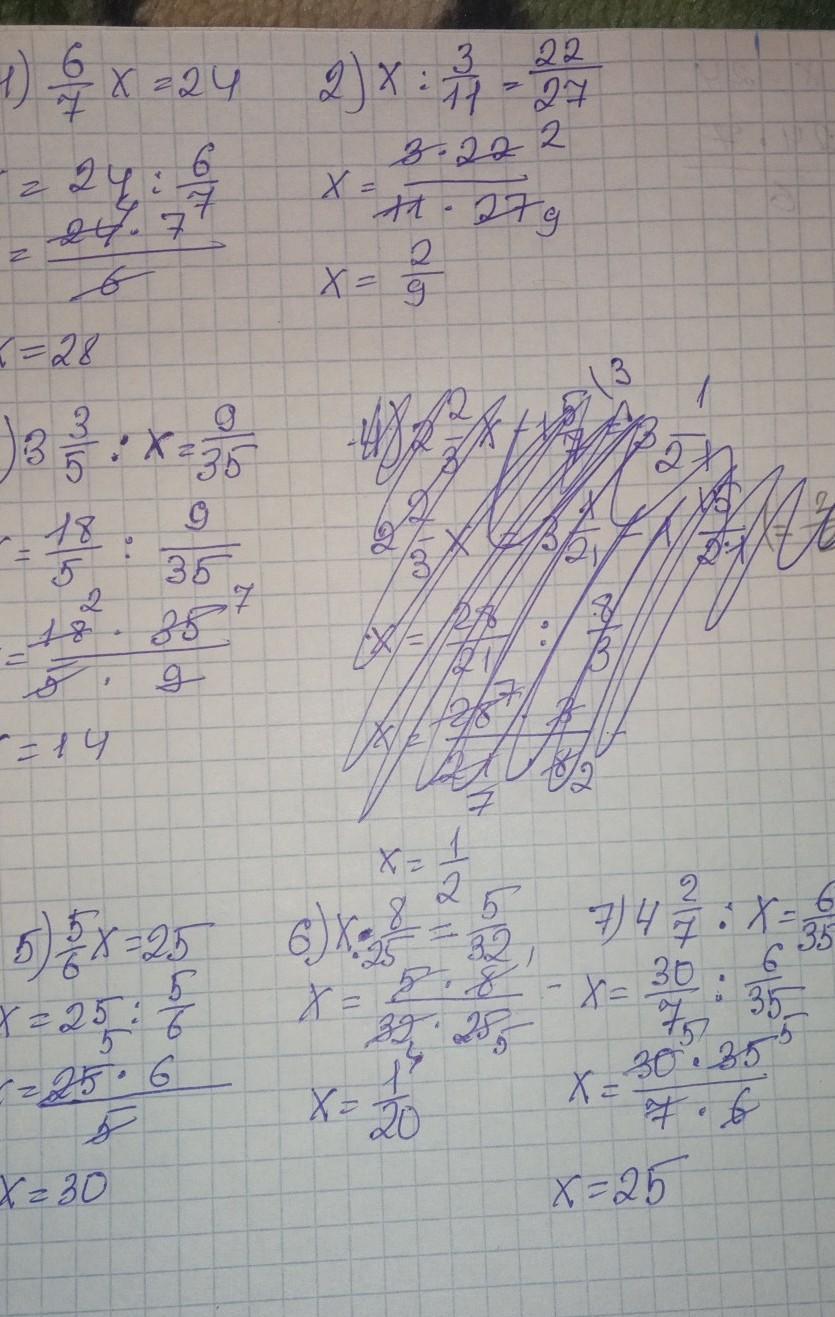 1) 6/7 x = 24
= 24 : 6/7
= 24 4 · 7 / 6
x = 28
2) x : 3/11 = 22/27
x = 3 · 22 2 / 11 · 27 9
x = 2/9
) 3 3/5 : x = 9/35
= 18/5 : 9/35
= 18 2 · 35 7 / 5 · 9
= 14
x = 28/21 : 8/3
x = 1/2
5) 5/6 x = 25
x = 25 : 5/6
= 25 5 · 6 / 5
x = 30
6) x : 8/25 = 5/32
x = 5 · 8 1 / 32 4 · 25 5
x = 1/20
7) 4 2/7 : x = 6/35
x = 30/7 : 6/35
x = 30 5 · 35 5 / 7 · 6
x = 25